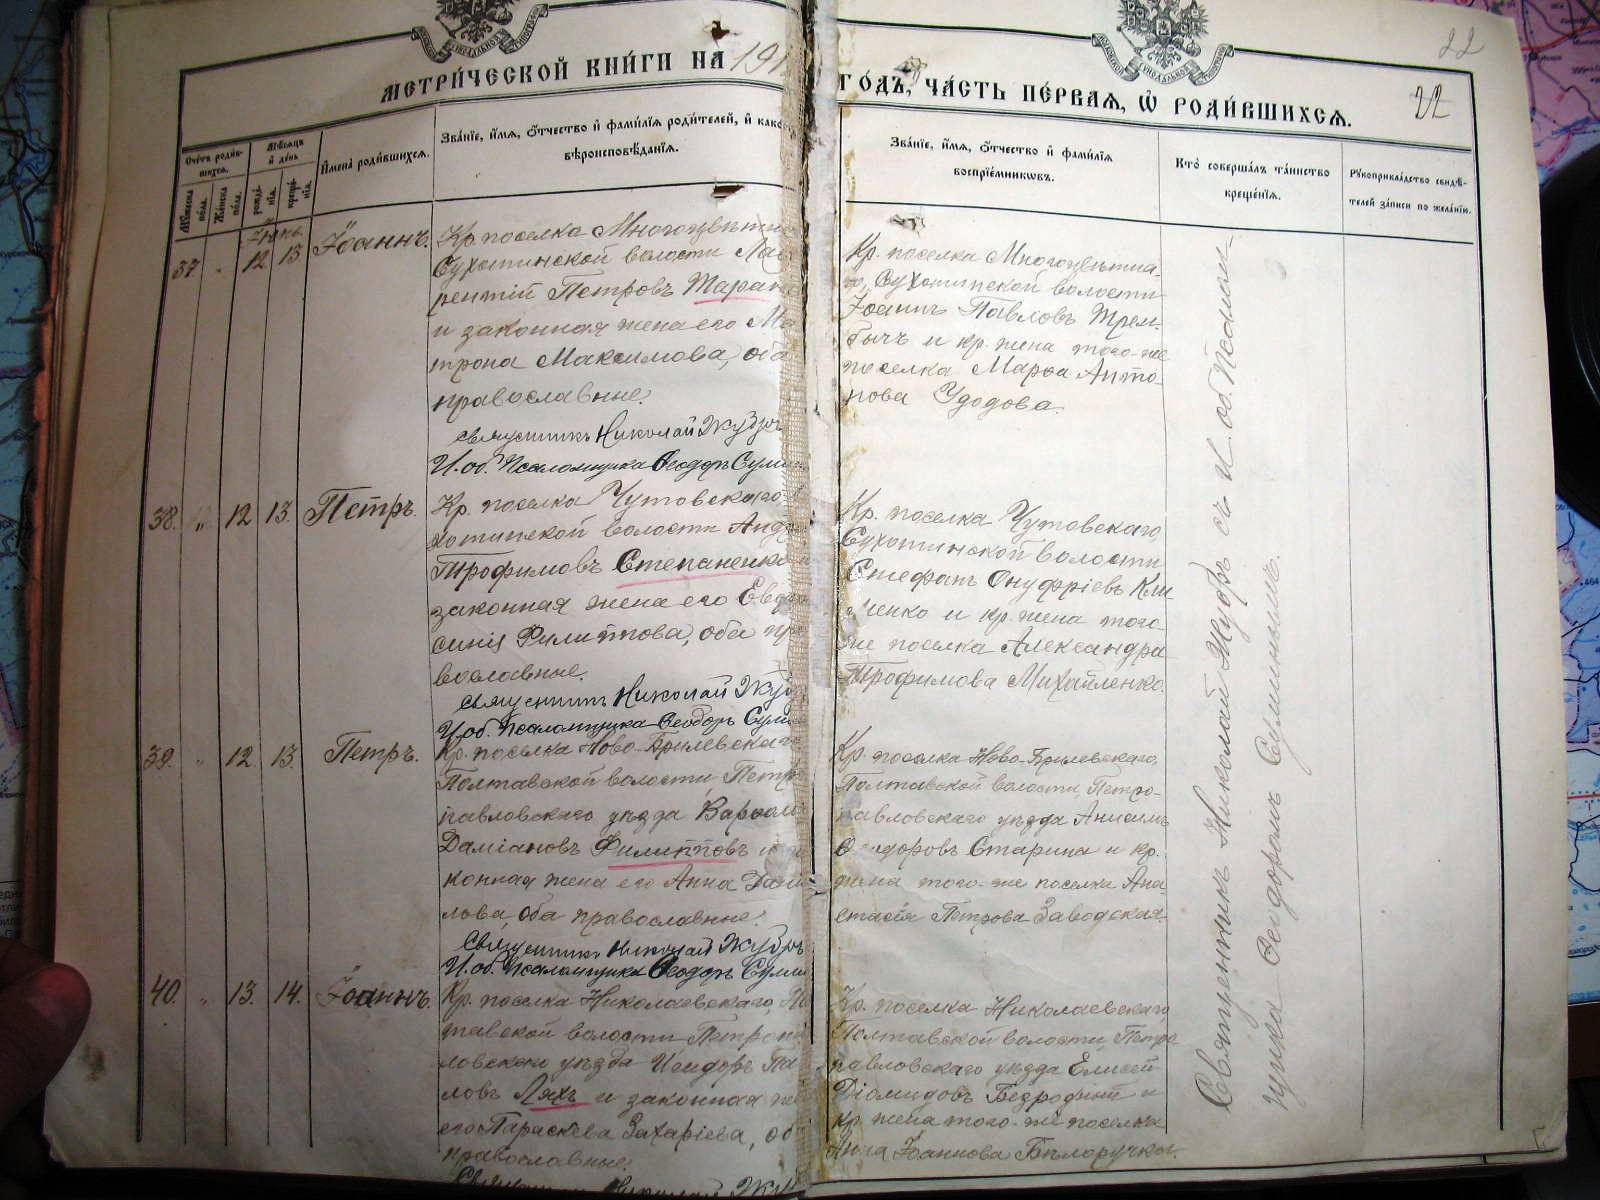 МЕТРИ́ЧЕСКОЙ КНИ́ГИ НА 191
ГО́ДЪ, ЧА́СТЬ ПЕ́РВАЯ, Ѡ҆ РОДИ́ВШИХСЯ.
22
22
Сче́тъ роди́вшихся.
Мѣ́сяцъ и҆ де́нь
Му́жеска по́ла.
Же́нска по́ла.
рожде́нїя.
креще́нїя.
И҆мена̀ роди́вшихся.
Зва́нїе, и҆́мя, ѻ҆́тчество и҆ фами́лїя роди́телей, и҆ како́
вѣроисповѣ́данїя.
Зва́нїе, и҆́мя, ѻ҆́тчество и҆ фами́лїя
воспрїе́мникѡвъ.
Кто̀ соверша́лъ та́инство
креще́нїя.
Рꙋкоприкла́дство свидѣ́-
телей за́писи по жела́нїю.
37
12
13
Іоаннъ.
Кр. поселка Многоцвѣтна
Сухотинской волости Лав
рентій Петровъ Таран
и законная жена его Ма
трона Максимова, оба
православные.
Священникъ Николай Жуб
И. об. Псаломщика Ѳеодоръ Сули
Кр. поселка Многоцвѣтна-
го, Сухотинской волости
Іоаннъ Павловъ Трем-
бачъ и кр. жена того-же
поселка Марѳа Анто-
нова Удодова.
38.
„
12
13.
Петръ.
Кр. поселка Чутовскаго
хотинской волости Андр
Трофимовъ Степаненко
законная жена его Евфро
синія Филиппова, оба пра
вославные.
Священникъ Николай Жуб
И. об. Псаломщика Ѳеодоръ Сули
Кр. поселка Чутовскаго,
Сухотинской волости
Стефанъ Онуфріевъ Кли
менко и кр. жена того-
же поселка Александра
Трофимова Михайленко.
39.
„
12.
13.
Петръ.
Кр. поселка Ново-Брилевскаго
Полтавской волости, Петро
павловскаго уѣзда Варѳоло
Даміановъ Филипповъ и
конная жена его Анна Дани
лова, оба православные.
Священникъ Николай Жуб
И. об. Псаломщика Ѳеодоръ Сули
Кр. поселка Ново-Брилевскаго,
Полтавской волости, Петро-
павловскаго уѣзда Анисимъ
Ѳеодоровъ Старина и кр.
жена того-же поселка Ана
стасія Петрова Заводская.
40.
„
13.
14.
Іоаннъ.
Кр. поселка Николаевскаго, По
тавской волости Петропа
ловскаго уѣзда Исидоръ Па
ловъ Ляхъ и законная же
его Параскева Захаріева, об
православные.
Николай Жу
Кр. поселка Николаевскаго
Полтавской волости, Петро
павловскаго уѣзда Елисей
Діомидовъ Безродный и
кр. жена того-же поселка
Анна Іоаннова Бѣлоручка.
Священникъ Николай Жубръ съ И. об. Псалом-
щика Ѳеодоромъ Сулинымъ.